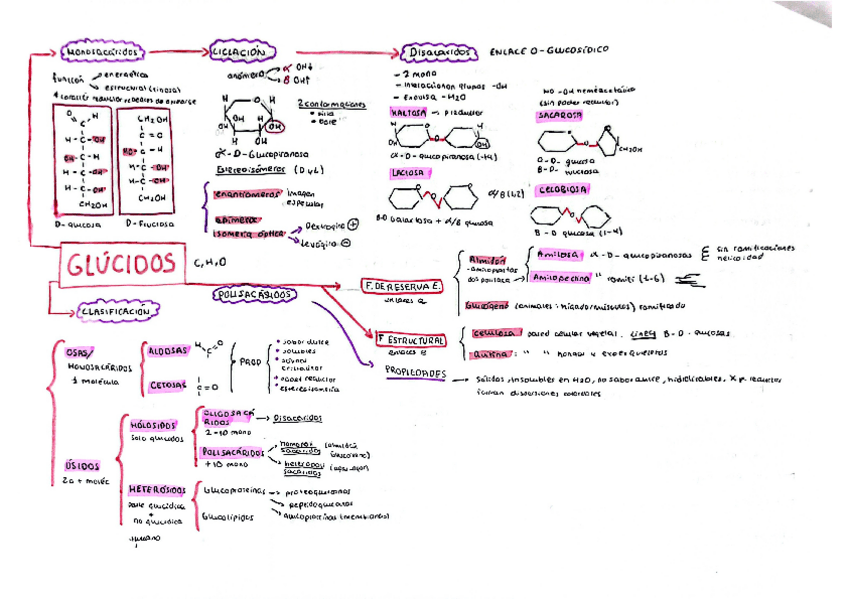 MONOSACÁRIDOS
función → energética
→ estructural (ribosa)
CH2OH
D-glucosa
CH2OH
C = O
CH2OH
D-Fructosa
CICLACIÓN
anómero → α OH↓
→ B OH↑
2 conformaciones
OH
α-D-Glucopiranosa
Estereoisómeros (D y L)
enantiómeros imagen
especular
epímeros
isomería óptica → Dextrógiro +
→ Levógiro −
Disacáridos
ENLACE O-GLUCOSÍDICO
- 2 mono
- Interaccionan grupos -OH
- Expulsa -H2O
MALTOSA
α-D-glucopiranosa (1-4)
LACTOSA
B-D Galactosa + α/B glucosa
NO -OH hemiacetálico
(sin poder reductor)
SACAROSA
CH2OH
α-D- glucosa
CELOBIOSA
B-D glucosa (1-4)
GLÚCIDOS
C, H, O
POLISACÁRIDOS
F. DE RESERVA E.
enlaces α
Almidón
Amilosa α-D-glucopiranosas
sin ramificaciones
helicoidal
Amilopectina " ramifi (1-6)
Glucógeno (animales: hígado/músculos) ramificado
F ESTRUCTURAL
enlaces B
Celulosa pared celular vegetal. lineal B-D-glucosas
Quitina: " " hongos y exoesqueletos
PROPIEDADES → sólidos, insolubles en H2O, no sabor dulce, hidrolizables, X p. reductor
forman dispersiones coloidales
CLASIFICACIÓN
OSAS/
MONOSACÁRIDOS
1 molécula
ALDOSAS
CETOSAS
C = O
PROP
• sabor dulce
• solubles
• poder reductor
• estereoisomería
ÓSIDOS
2 o + moléc
HÓLOSIDOS
solo glúcidos
OLIGOSACÁ
RIDOS → Disacáridos
2-10 mono
POLISACÁRIDOS
+10 mono
homopoli
sacáridos
heteropoli
sacáridos (agar-agar)
HETERÓSIDOS
parte glucídica
+
no glucídica
Glucoproteínas → proteoglucanos
→ peptidoglucanos
→ glucoproteínas (membranas)
Glucolípidos